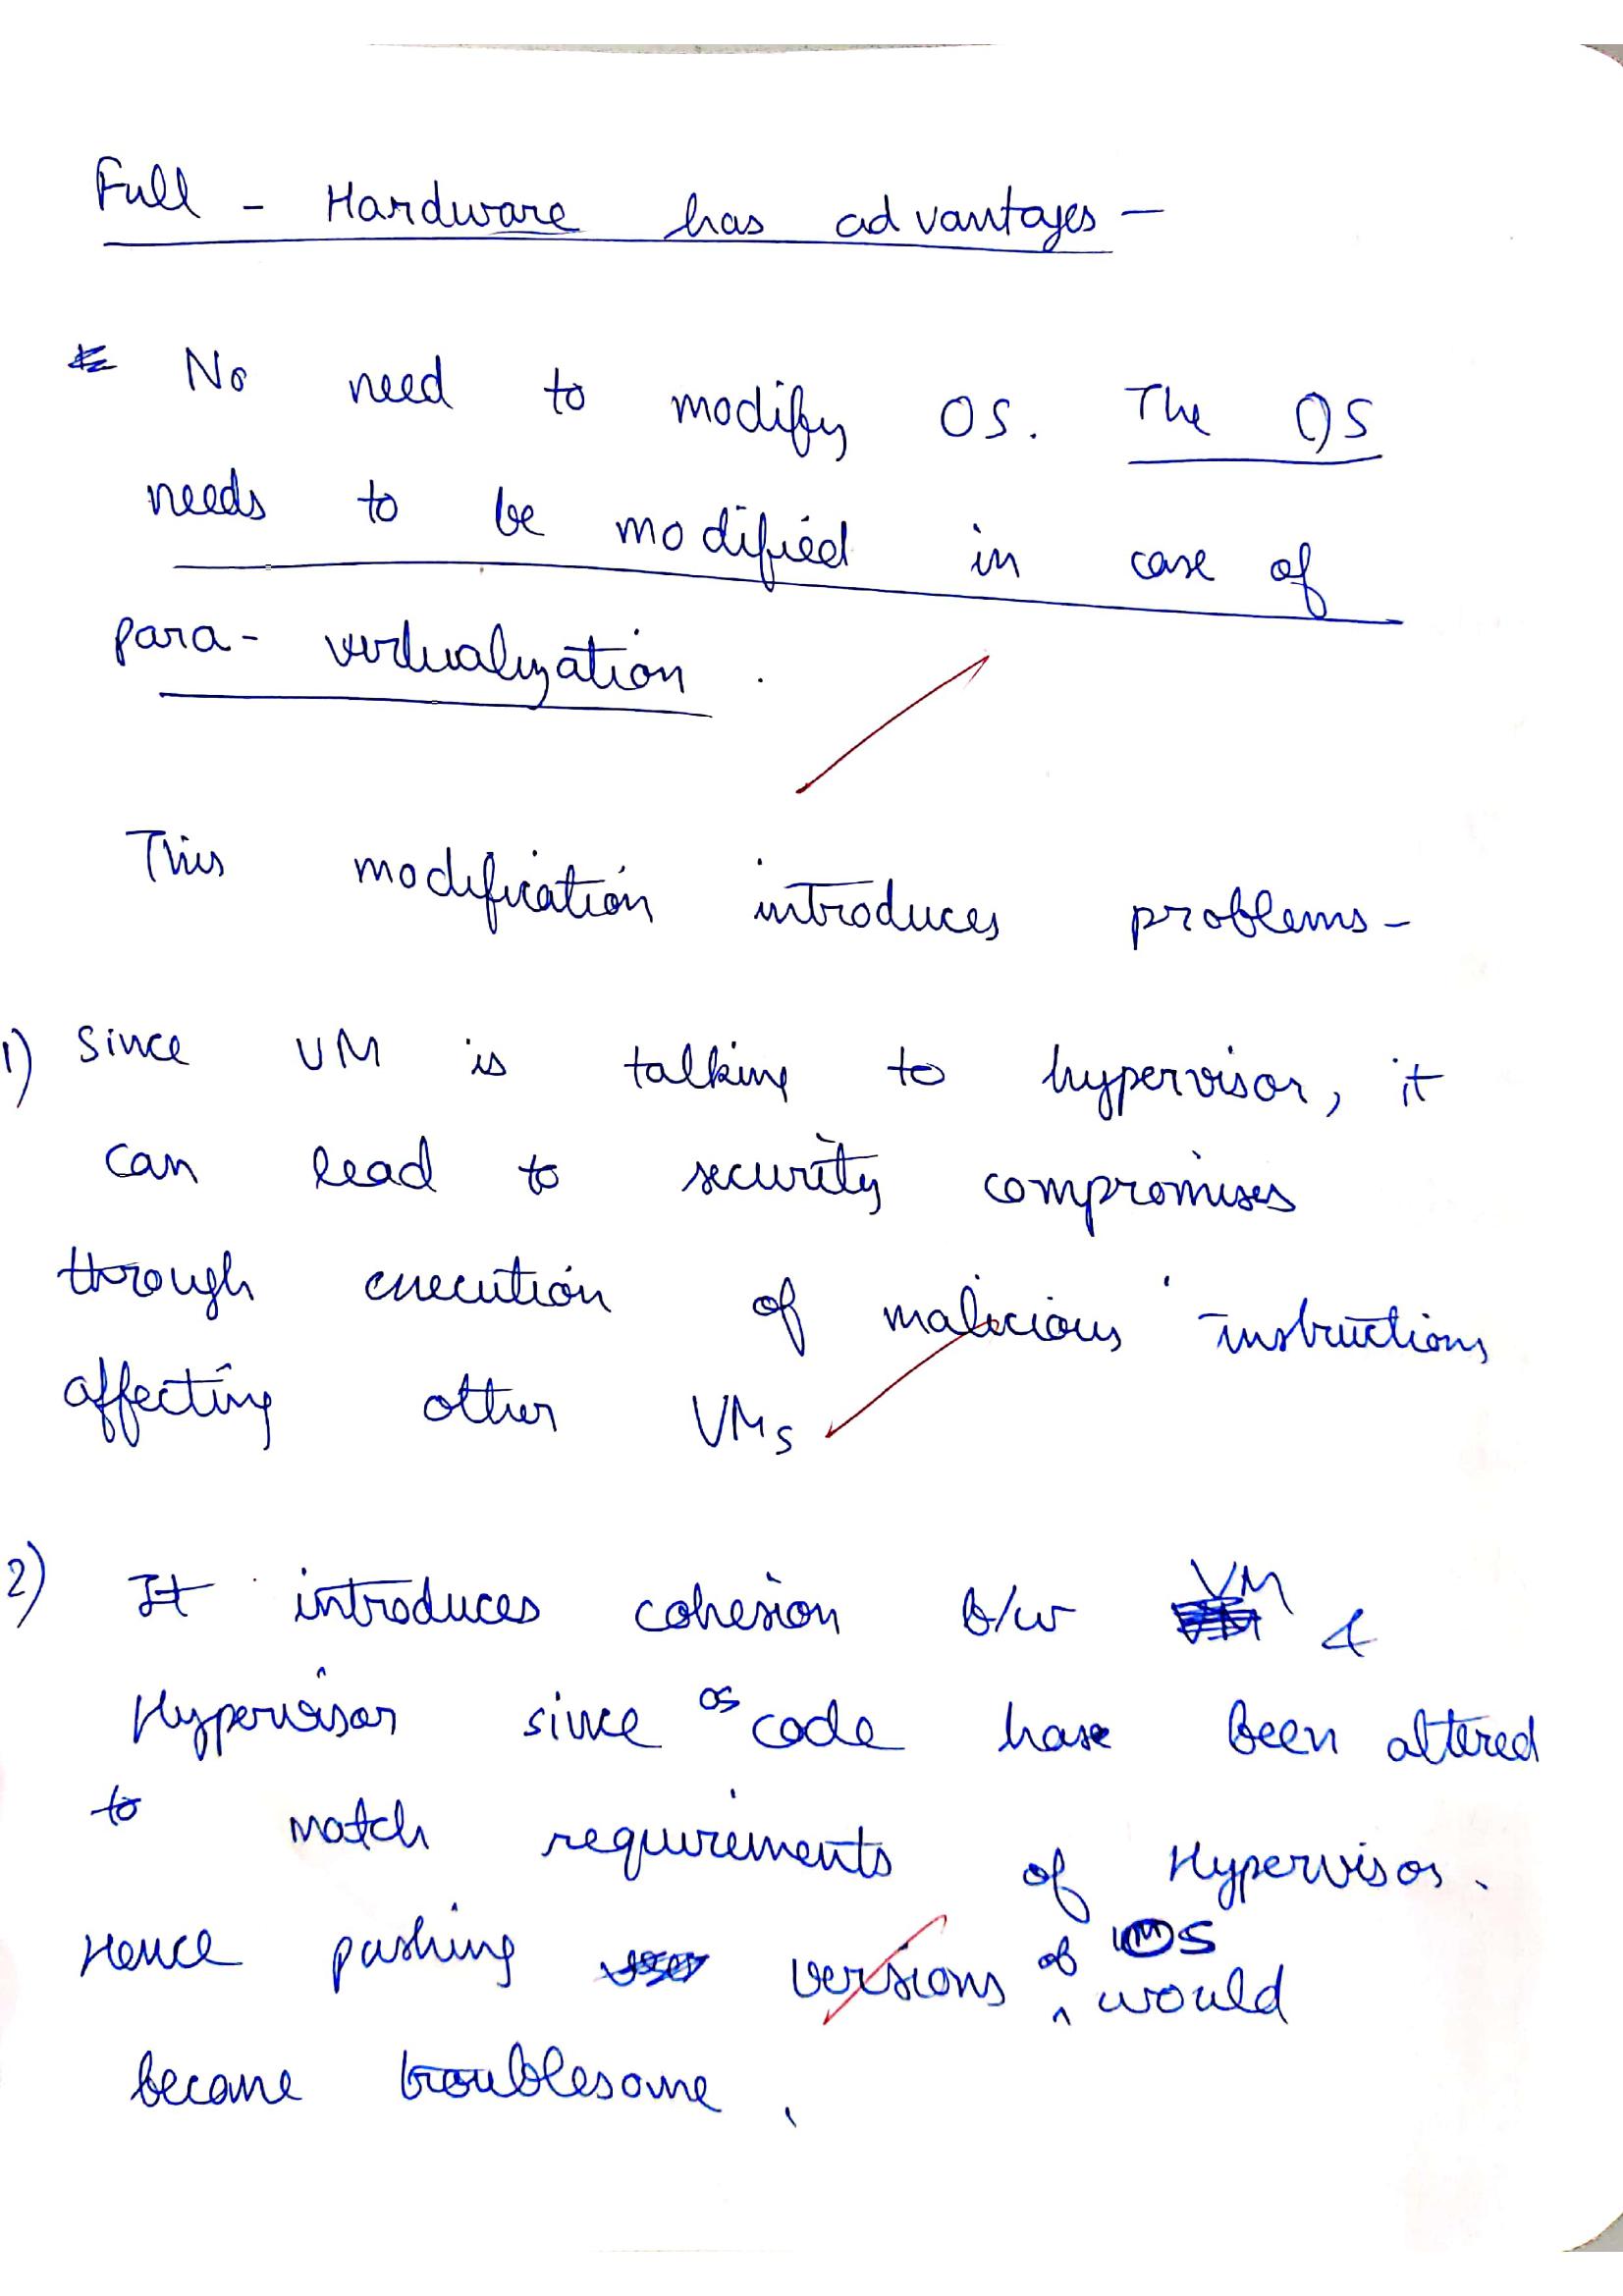 Full - Hardware has advantages -
* No need to modify OS. The OS
needs to be modified in case of
para- virtualization.
This modification introduces problems-
1) Since VM is talking to hypervisor, it
can lead to security compromises
through execution of malicious instructions
affecting other VMs
2) It introduces cohesion b/w VM &
Hypervisor since OS code have been altered
to match requirements of Hypervisor.
Hence pushing versions of OS would
become troublesome.